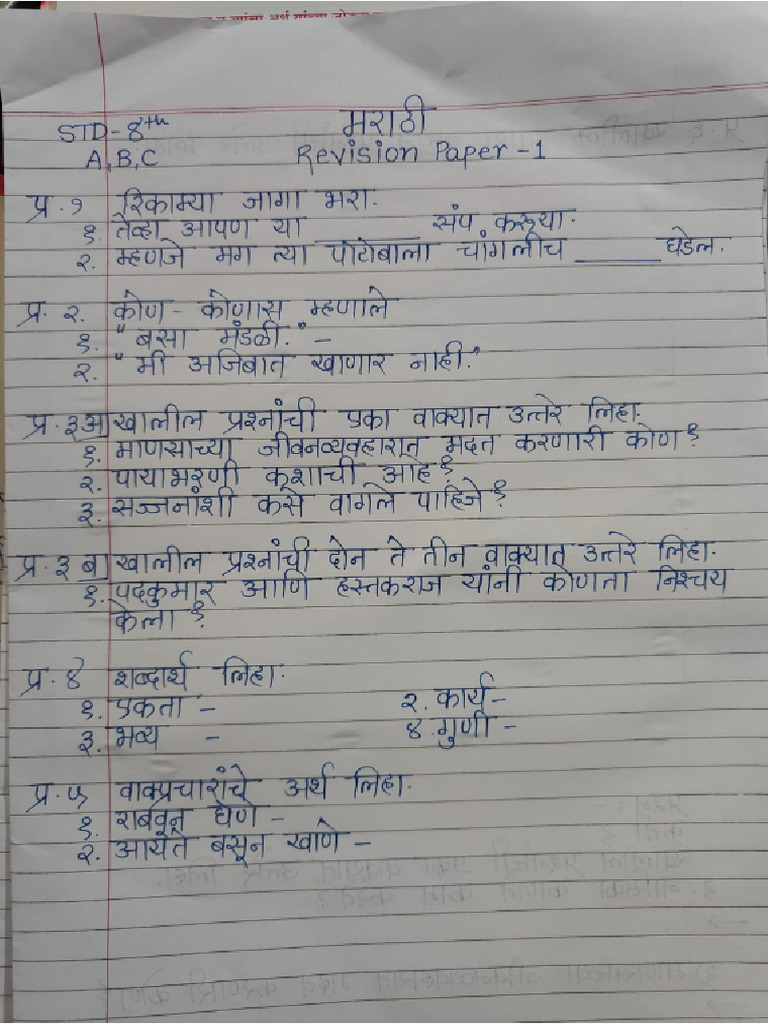 STD-8th
मराठी
A,B,C
Revision Paper-1
प्र.१ रिकाम्या जागा भरा.
१. तेव्हा आपण या ______ संप करूया.
२. म्हणजे मग त्या पोटोबाला चांगलीच ______ घडेल.
प्र. २. कोण-कोणास म्हणाले
१. "बसा मंडळी." -
२. "मी अजिबात खाणार नाही."
प्र. ३ अ) खालील प्रश्नांची एका वाक्यात उत्तरे लिहा.
१. माणसाच्या जीवनव्यवहारात मदत करणारी कोण?
२. पायाभरणी कशाची आहे?
३. सज्जनांशी कसे वागले पाहिजे?
प्र. ३ ब) खालील प्रश्नांची दोन ते तीन वाक्यात उत्तरे लिहा.
१. पदकुमार आणि हस्तकराज यांनी कोणता निश्चय
केला?
प्र. ४ शब्दार्थ लिहा.
१. एकता - २. कार्य-
३. भव्य - ४. गुणी -
प्र. ५ वाक्प्रचारांचे अर्थ लिहा.
१. राबवून घेणे -
२. आयते बसून खाणे -